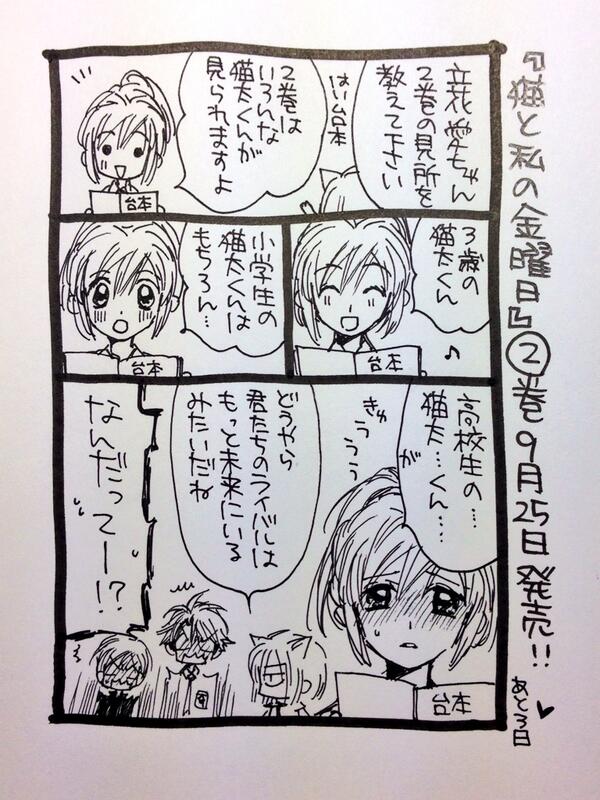 『猫と私の金曜日』②巻9月25日発売!!
あと3日
立花愛ちゃん
2巻の見所を
教えて下さい
はい台本
2巻は
いろんな
猫太くんが
見られますよ
台本
3歳の
猫太くん
♪
台本
小学生の
猫太くんは
もちろん…
台本
高校生の…
猫太…くん…
が
きゅううう
台本
どうやら
君たちのライバルは
もっと未来にいる
みたいだね
なんだってー!?